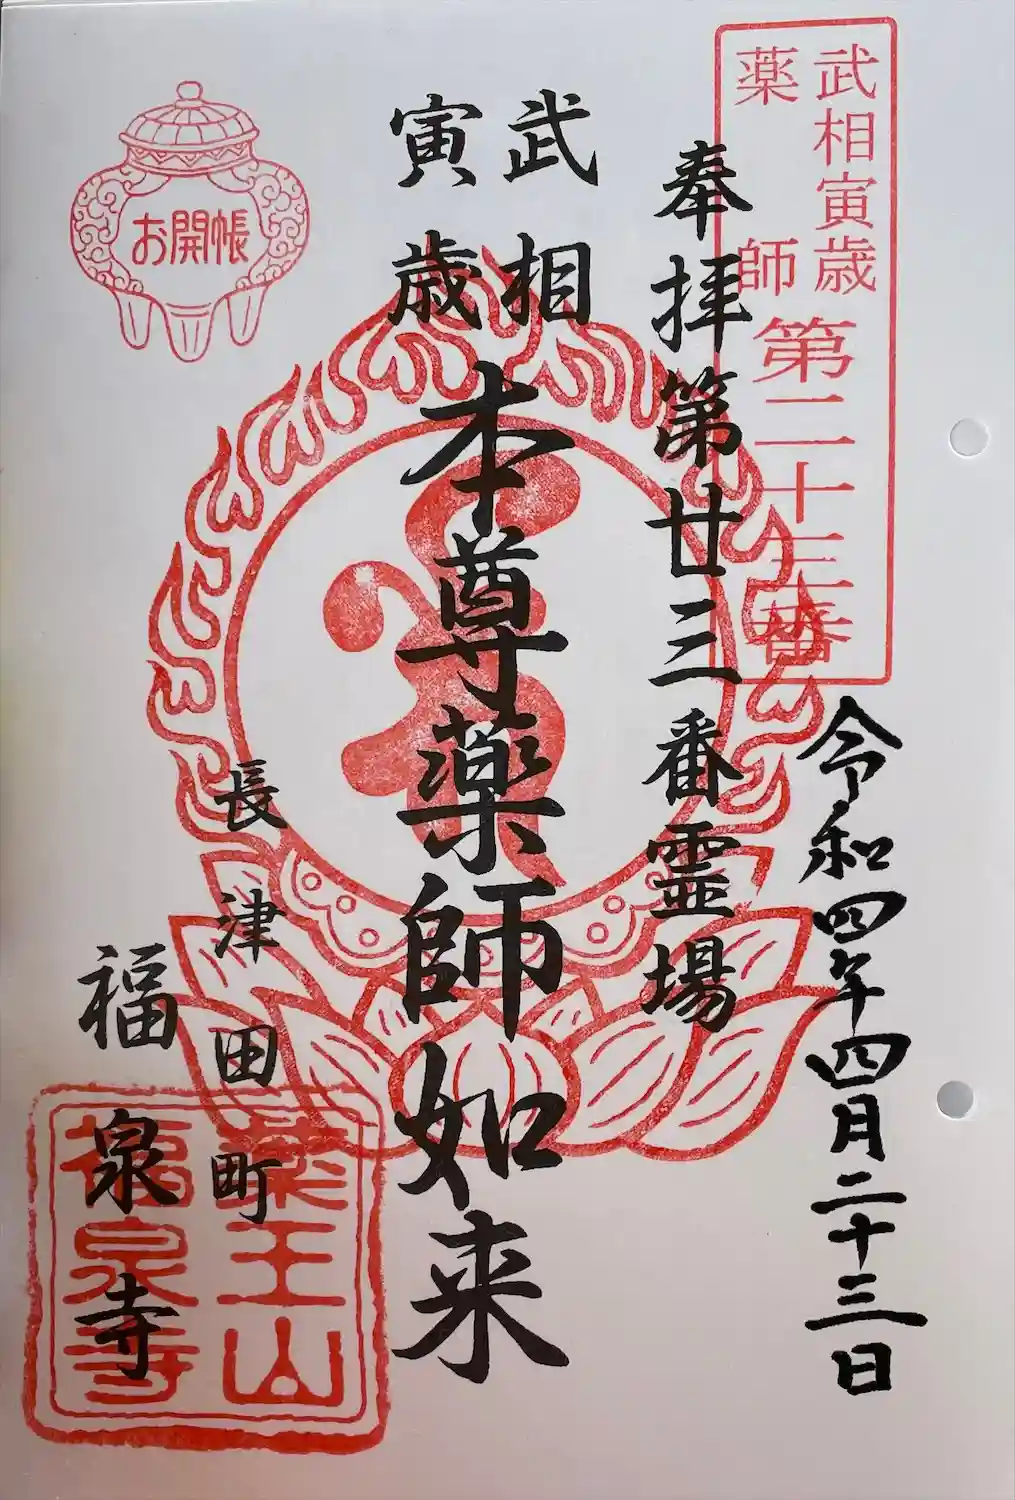 武相寅歳
薬師
第二十三番
令和四年四月二十三日
奉拝第廿三番霊場
武相
寅歳
本尊薬師如来
お開帳
長津田町
福泉寺
薬王山
福泉寺